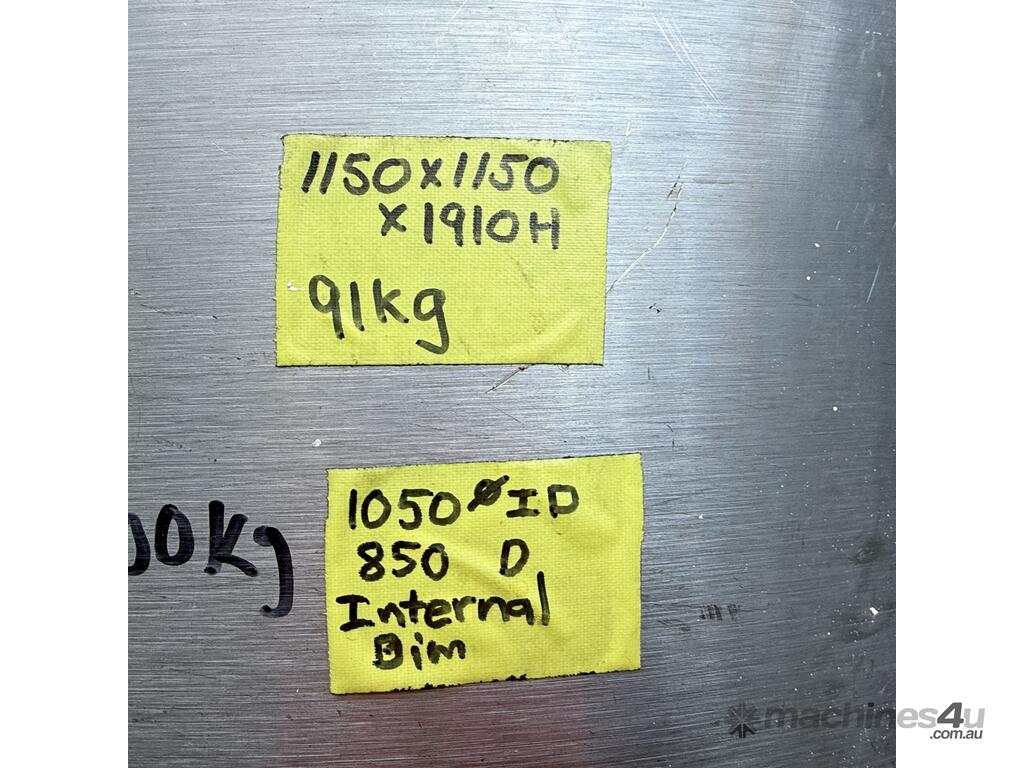 1150x1150
x1910H
91kg
00Kg
1050ø ID
850 D
Internal
Dim
machines4u
.com.au